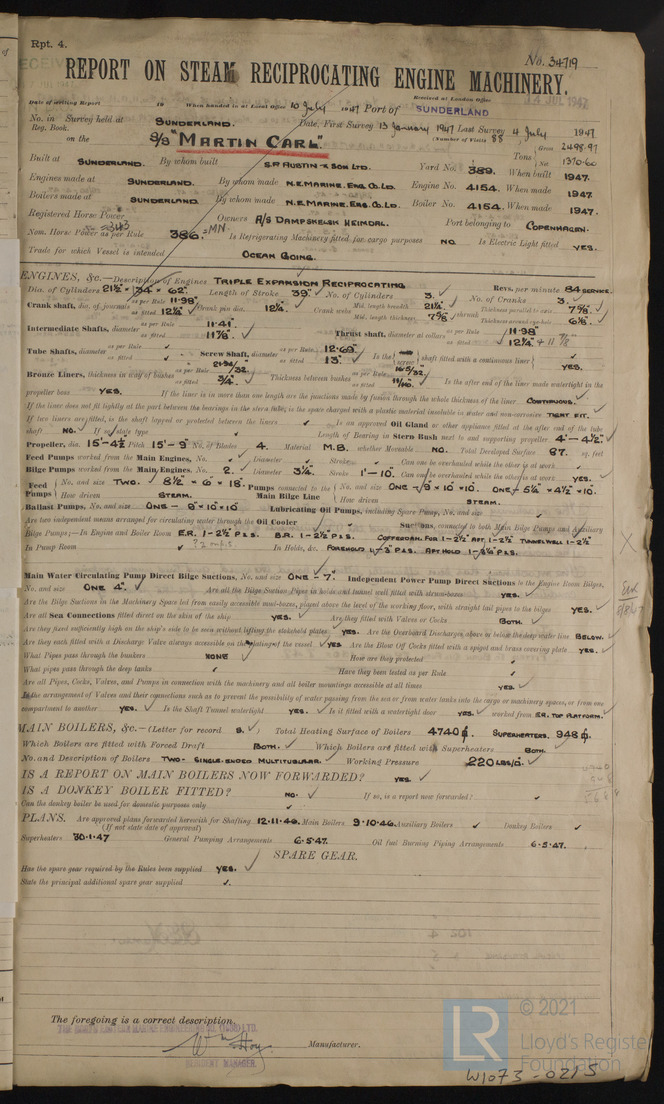 Rpt. 4.
No. 34719
REPORT ON STEAM RECIPROCATING ENGINE MACHINERY.
Received at London Office 14 JUL 1947
Date of writing Report 19 When handed in at Local Office 10 July 1947 Port of SUNDERLAND
No. in Survey held at SUNDERLAND. Date, First Survey 13 January 1947 Last Survey 4 July 1947
Reg. Book. (Number of Visits 88)
on the S/S "MARTIN CARL." Tons Gross 2498.97 Net 1370.60
Built at SUNDERLAND. By whom built S.P. AUSTIN & SON LTD. Yard No. 389. When built 1947.
Engines made at SUNDERLAND. By whom made N.E. MARINE. ENG. CO. LD. Engine No. 4154. When made 1947
Boilers made at SUNDERLAND. By whom made N.E. MARINE. ENG. CO. LD. Boiler No. 4154. When made 1947.
Registered Horse Power Owners A/S DAMPSKELSK HEIMDAL. Port belonging to COPENHAGEN.
Nom. Horse Power as per Rule 386. =MN. Is Refrigerating Machinery fitted for cargo purposes NO. Is Electric Light fitted YES.
Trade for which Vessel is intended OCEAN GOING.
ENGINES, &c.—Description of Engines TRIPLE EXPANSION RECIPROCATING. Revs. per minute 84 SERVICE.
Dia. of Cylinders 21½" × 34" × 62" Length of Stroke 39" No. of Cylinders 3. No. of Cranks 3.
Crank shaft, dia. of journals as per Rule 11.98 as fitted 12¼" Crank pin dia. 12¼" Crank webs Mid. length breadth 21½" Mid. length thickness 7⅝" shrunk Thickness parallel to axis 7⅝" Thickness around eye-hole 6⅛"
Intermediate Shafts, diameter as per Rule 11.41 as fitted 11⅞" Thrust shaft, diameter at collars as per Rule 11.98 as fitted 12¼" & 11⅞"
Tube Shafts, diameter as per Rule as fitted Screw Shaft, diameter as per Rule 12.69" as fitted 13" Is the screw shaft fitted with a continuous liner YES.
Bronze Liners, thickness in way of bushes as per Rule 21.94/32 as fitted ¾" Thickness between bushes as per Rule 16.5/32 as fitted 11/16" Is the after end of the liner made watertight in the
propeller boss YES. If the liner is in more than one length are the junctions made by fusion through the whole thickness of the liner CONTINUOUS.
If the liner does not fit tightly at the part between the bearings in the stern tube, is the space charged with a plastic material insoluble in water and non-corrosive TIGHT FIT.
If two liners are fitted, is the shaft lapped or protected between the liners Is an approved Oil Gland or other appliance fitted at the after end of the tube
shaft NO. If so state type Length of Bearing in Stern Bush next to and supporting propeller 4'–4½"
Propeller, dia. 15'–4½" Pitch 15'–9" No. of Blades 4. Material M.B. whether Moveable NO. Total Developed Surface 87. sq. feet
Feed Pumps worked from the Main Engines, No. Diameter Stroke Can one be overhauled while the other is at work
Bilge Pumps worked from the Main Engines, No. 2. Diameter 3¾" Stroke 1'–10" Can one be overhauled while the other is at work YES.
Feed Pumps No. and size TWO. 8½" × 6 × 18" How driven STEAM. Pumps connected to the Main Bilge Line No. and size ONE – 9 × 10 × 10. ONE – 5¼" × 4½" × 10. How driven STEAM.
Ballast Pumps, No. and size ONE – 9" × 10 × 10" Lubricating Oil Pumps, including Spare Pump, No. and size
Are two independent means arranged for circulating water through the Oil Cooler Suctions, connected to both Main Bilge Pumps and Auxiliary
Bilge Pumps;—In Engine and Boiler Room E.R. 1–2½" P & S. B.R. 1–2½" P & S. COFFERDAM. FOR 1–2½" AFT 1–2½" TUNNEL WELL 1–2½"
In Pump Room In Holds, &c.
Main Water Circulating Pump Direct Bilge Suctions, No. and size ONE – 7" Independent Power Pump Direct Suctions to the Engine Room Bilges,
No. and size ONE 4". Are all the Bilge Suction Pipes in holds and tunnel well fitted with strum-boxes YES.
Are the Bilge Suctions in the Machinery Space led from easily accessible mud-boxes, placed above the level of the working floor, with straight tail pipes to the bilges YES.
Are all Sea Connections fitted direct on the skin of the ship YES. Are they fitted with Valves or Cocks BOTH.
Are they fixed sufficiently high on the ship's side to be seen without lifting the stokehold plates YES. Are the Overboard Discharges above or below the deep water line BELOW.
Are they each fitted with a Discharge Valve always accessible on the plating of the vessel YES Are the Blow Off Cocks fitted with a spigot and brass covering plate YES.
What Pipes pass through the bunkers NONE How are they protected
What pipes pass through the deep tanks Have they been tested as per Rule
Are all Pipes, Cocks, Valves, and Pumps in connection with the machinery and all boiler mountings accessible at all times YES.
Is the arrangement of Valves and their connections such as to prevent the possibility of water passing from the sea or from water tanks into the cargo or machinery spaces, or from one
compartment to another YES. Is the Shaft Tunnel watertight YES. Is it fitted with a watertight door YES. worked from E.R. TOP PLATFORM.
MAIN BOILERS, &c.—(Letter for record S.) Total Heating Surface of Boilers 4740 ф. SUPERHEATERS. 948 ф.
Which Boilers are fitted with Forced Draft BOTH. Which Boilers are fitted with Superheaters BOTH.
No. and Description of Boilers TWO – SINGLE-ENDED MULTITUBULAR. Working Pressure 220 LBS/□"
IS A REPORT ON MAIN BOILERS NOW FORWARDED? YES.
IS A DONKEY BOILER FITTED? NO. If so, is a report now forwarded?
Can the donkey boiler be used for domestic purposes only
PLANS. Are approved plans forwarded herewith for Shafting 12.11.46. Main Boilers 9.10.46. Auxiliary Boilers Donkey Boilers
(If not state date of approval)
Superheaters 30.1.47 General Pumping Arrangements 6.5.47. Oil fuel Burning Piping Arrangements 6.5.47.
SPARE GEAR.
Has the spare gear required by the Rules been supplied YES.
State the principal additional spare gear supplied
The foregoing is a correct description.
Manufacturer.
RESIDENT MANAGER.
© 2021
LR
Lloyd's Register
Foundation
W1073-0215